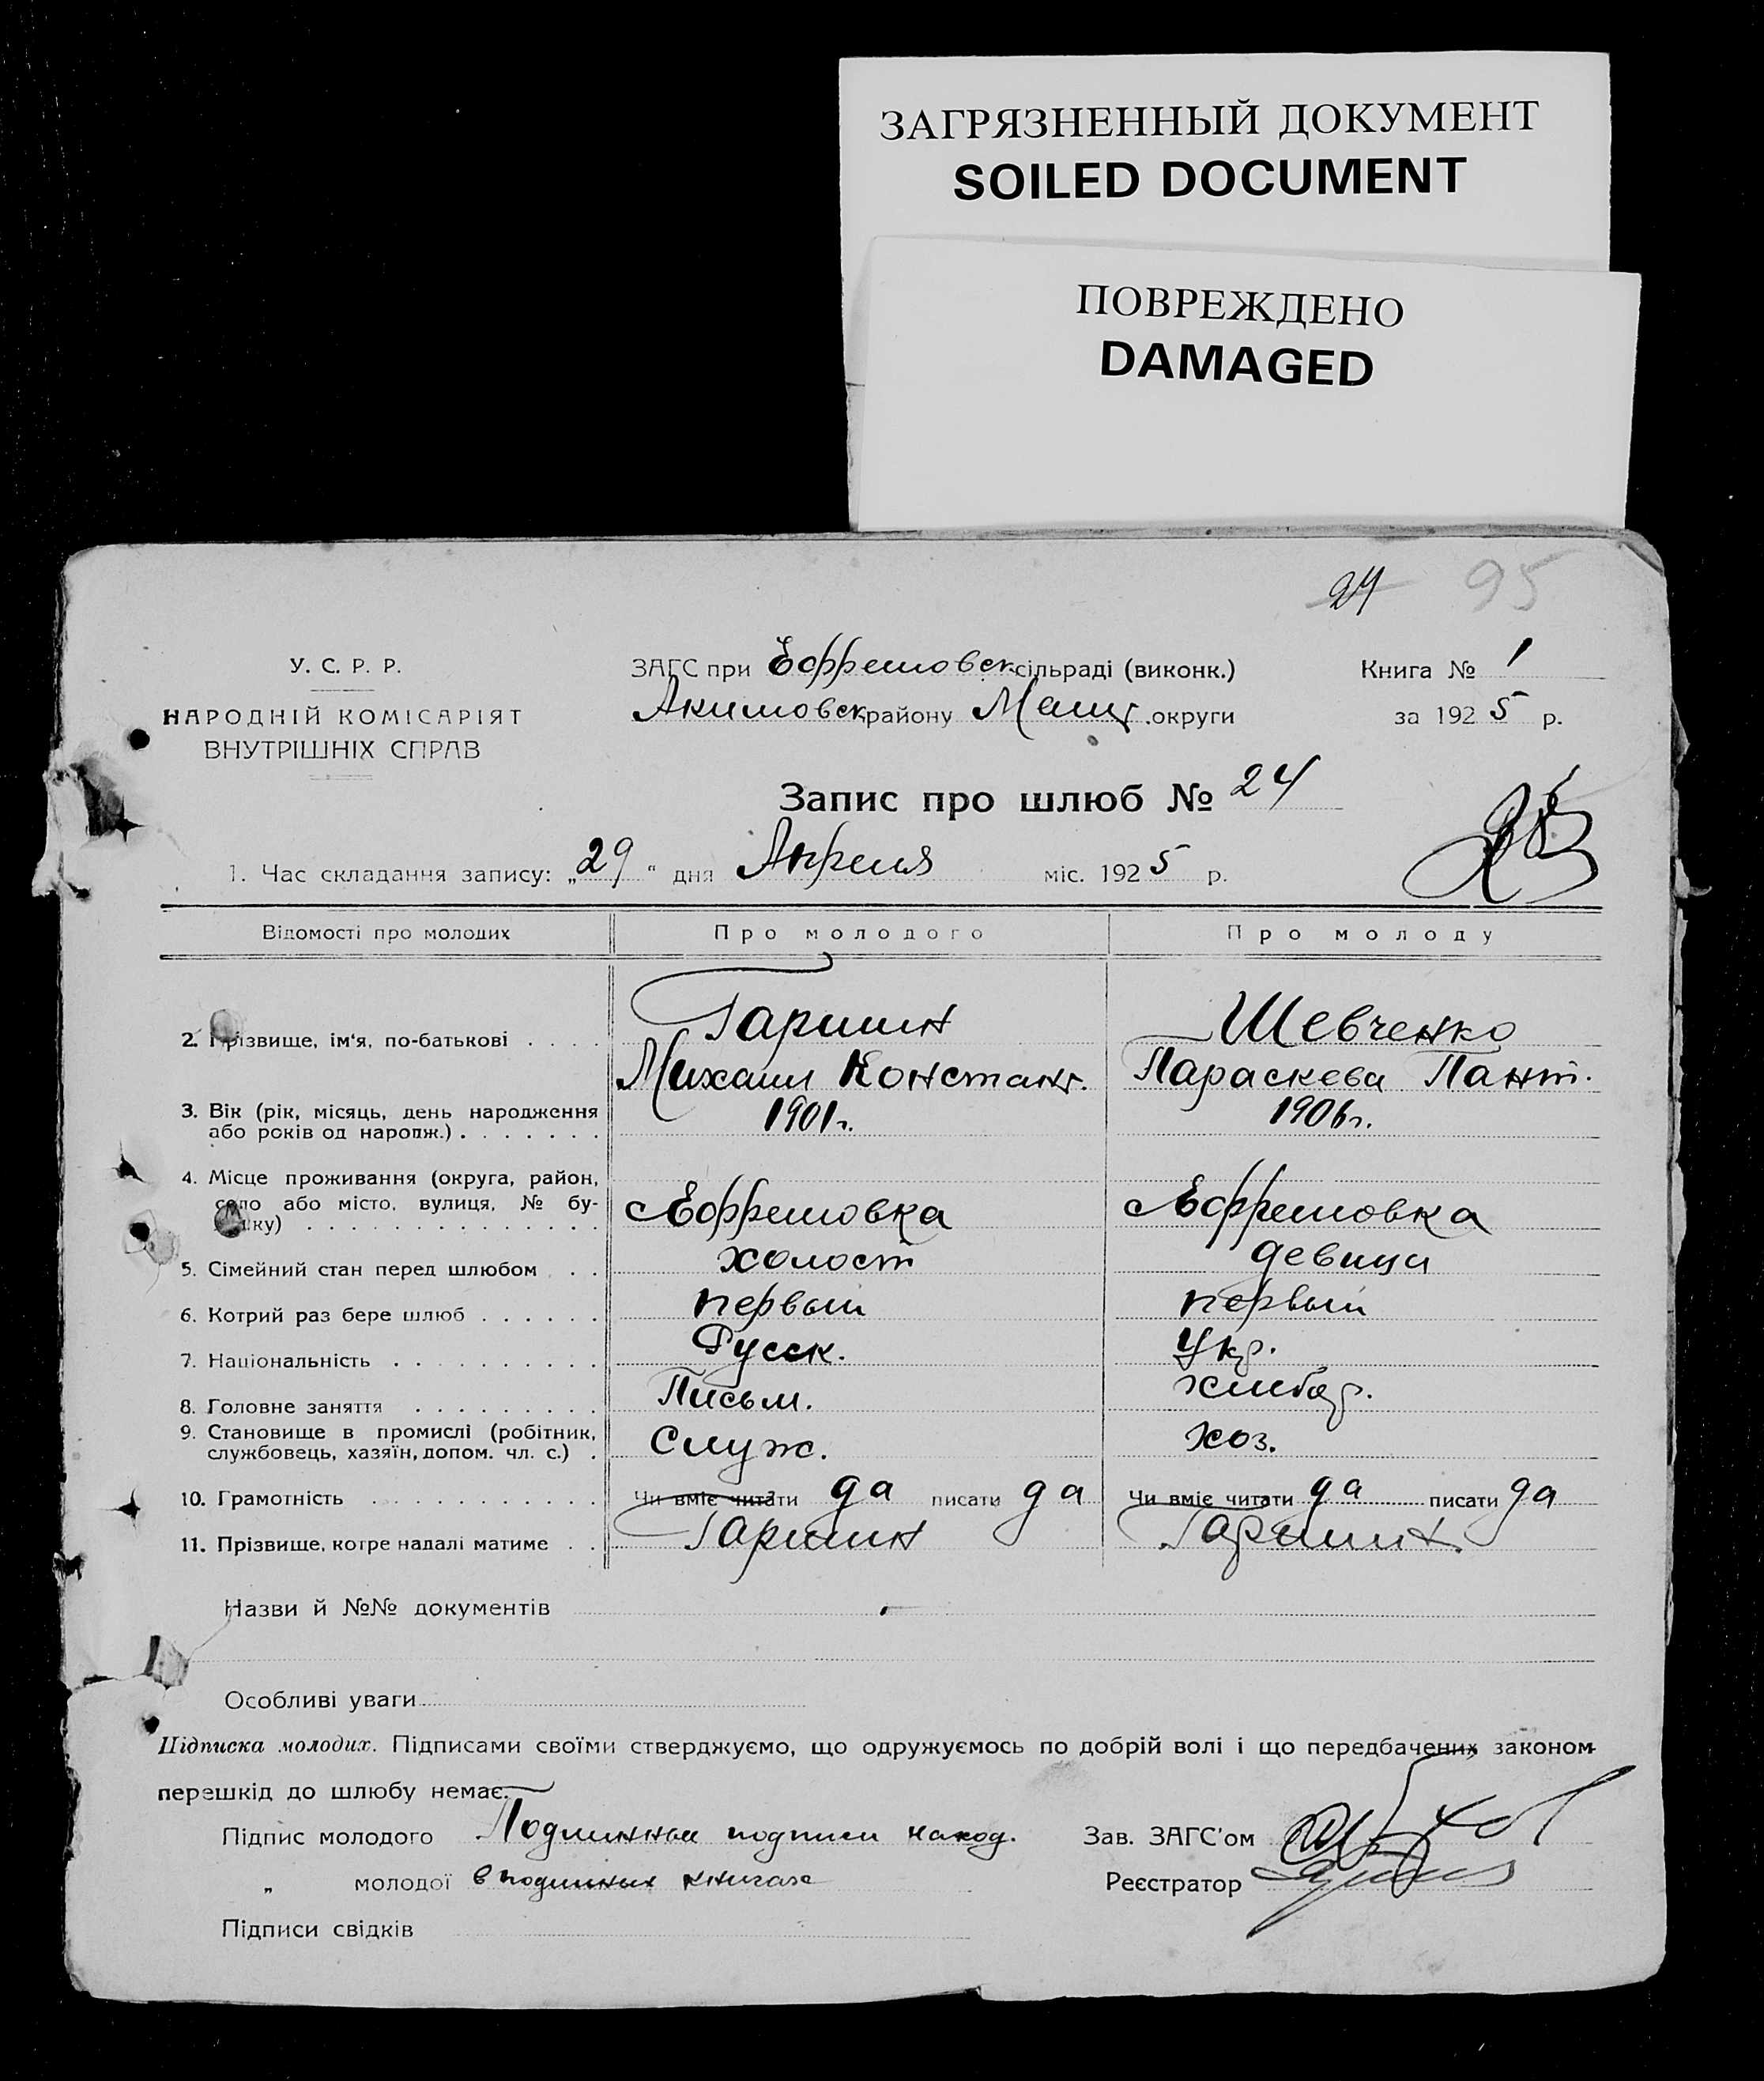 ЗАГРЯЗНЕННЫЙ ДОКУМЕНТ
SOILED DOCUMENT
ПОВРЕЖДЕНО
DAMAGED
24 95
У. С. Р. Р.
НАРОДНІЙ КОМІСАРІЯТ
ВНУТРІШНІХ СПРАВ
ЗАГС при Ефремовск сільраді (виконк.)
Акимовск району Мелит. округи
Книга № 1
за 1925 р.
Запис про шлюб № 24
1. Час складання запису: „29“ дня Апреля міс. 1925 р.
Відомості про молодих Про молодого Про молоду
2. Прізвище, ім'я, по-батькові . . . . Гаршин Шевченко
Михаил Констант. Параскева Пант.
3. Вік (рік, місяць, день народження або років од народж.) . . . . . . . 1901 г. 1906 г.
4. Місце проживання (округа, район, село або місто, вулиця, № будинку) . . . . Ефремовка Ефремовка
5. Сімейний стан перед шлюбом . . холост девица
6. Котрий раз бере шлюб . . . . . . первый первый
7. Національність . . . . . . . . . . Русск. Укр.
8. Головне заняття . . . . . . . . . Письм. хлебор.
9. Становище в промислі (робітник, службовець, хазяїн, допом. чл. с.) . Служ. хоз.
10. Грамотність . . . . . . . . . . . . Чи вміє читати да писати да Чи вміє читати да писати да
11. Прізвище, котре надалі матиме . . Гаршин Гаршин.
Назви й №№ документів
Особливі уваги
Підписка молодих. Підписами своїми стверджуємо, що одружуємось по добрій волі і що передбачених законом
перешкід до шлюбу немає.
Підпис молодого Подлинные подписи наход. Зав. ЗАГС'ом
„ молодої в подлинных книгах Реєстратор
Підписи свідків